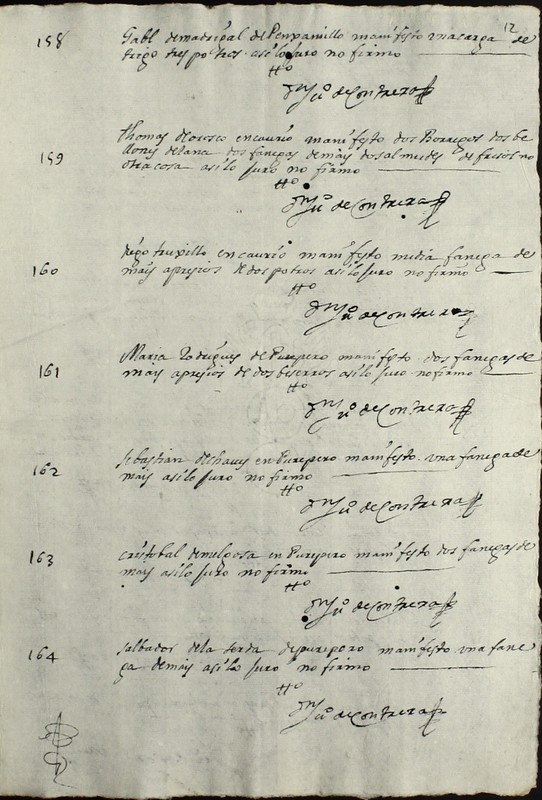 12
158 Gabl de madrigal de Penxamillo manifesto una carga de
trigo dos potros asi lo juro no firmo
tto
Juo de Contreras
159 thomas de orosco en caurio manifesto dos Borregos dos be
llones de lana dos fanegas de mais dos almudes de frisol no
otra cosa asi lo juro no firmo
tto
Juo de Contreras
160 diego truxillo en caurio manifesto media fanega de
mais apresios de dos potros asi lo juro no firmo
tto
Juo de Contreras
161 Maria Rodrigues de Purepero manifesto dos fanegas de
mais apresios de dos beserros asi lo juro no firmo
tto
Juo de Contreras
162 sebastian de chaues en Purepero manifesto una fanega de
mais asi lo juro no firmo
tto
Juo de Contreras
163 cristobal de en Purepero manifesto dos fanegas de
mais asi lo juro no firmo
tto
Juo de Contreras
164 salbador de la serda de purepero manifesto una fane
ga de mais asi lo juro no firmo
tto
Juo de Contreras